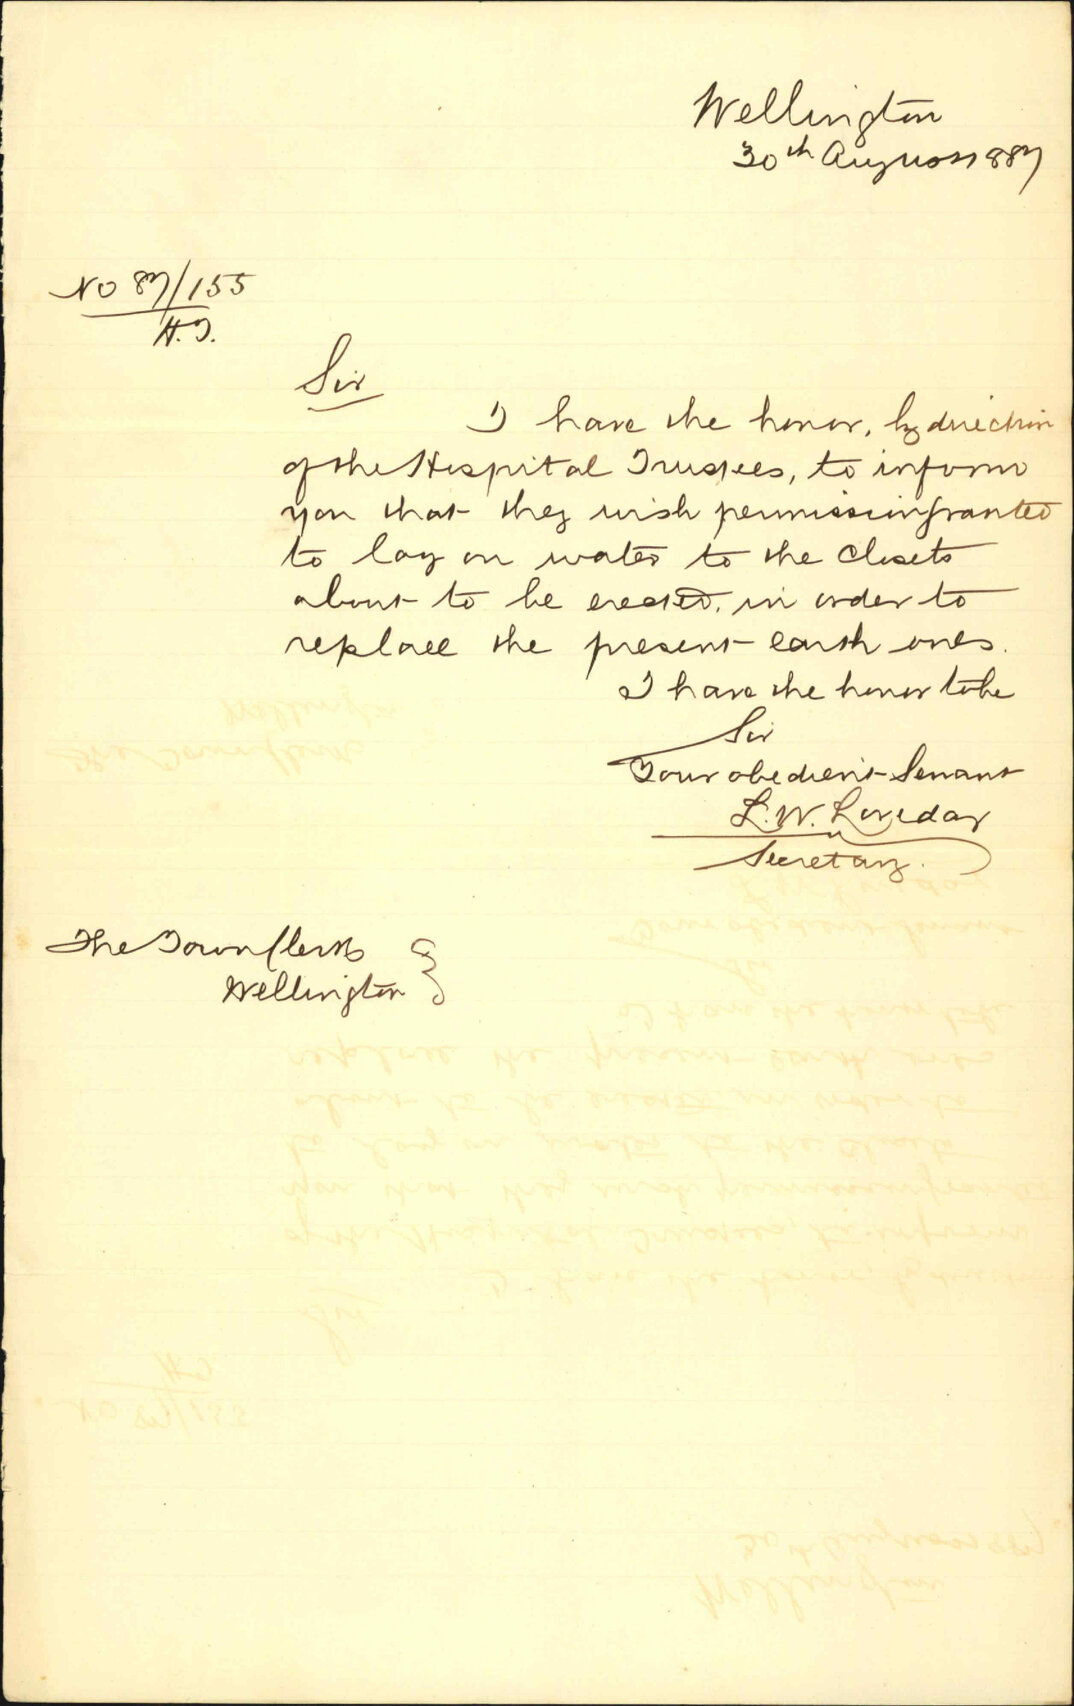 Wellington
30th August 1887
No 87/155
H.T.
Sir
I have the honor, by direction
of the Hospital Trustees, to inform
you that they wish permission granted
to lay on water to the Closets
about to be erected, in order to
replace the present earth ones.
I have the honor to be
Sir
Your obedient Servant
L. W. Loveday
Secretary.
The Town Clerk
Wellington